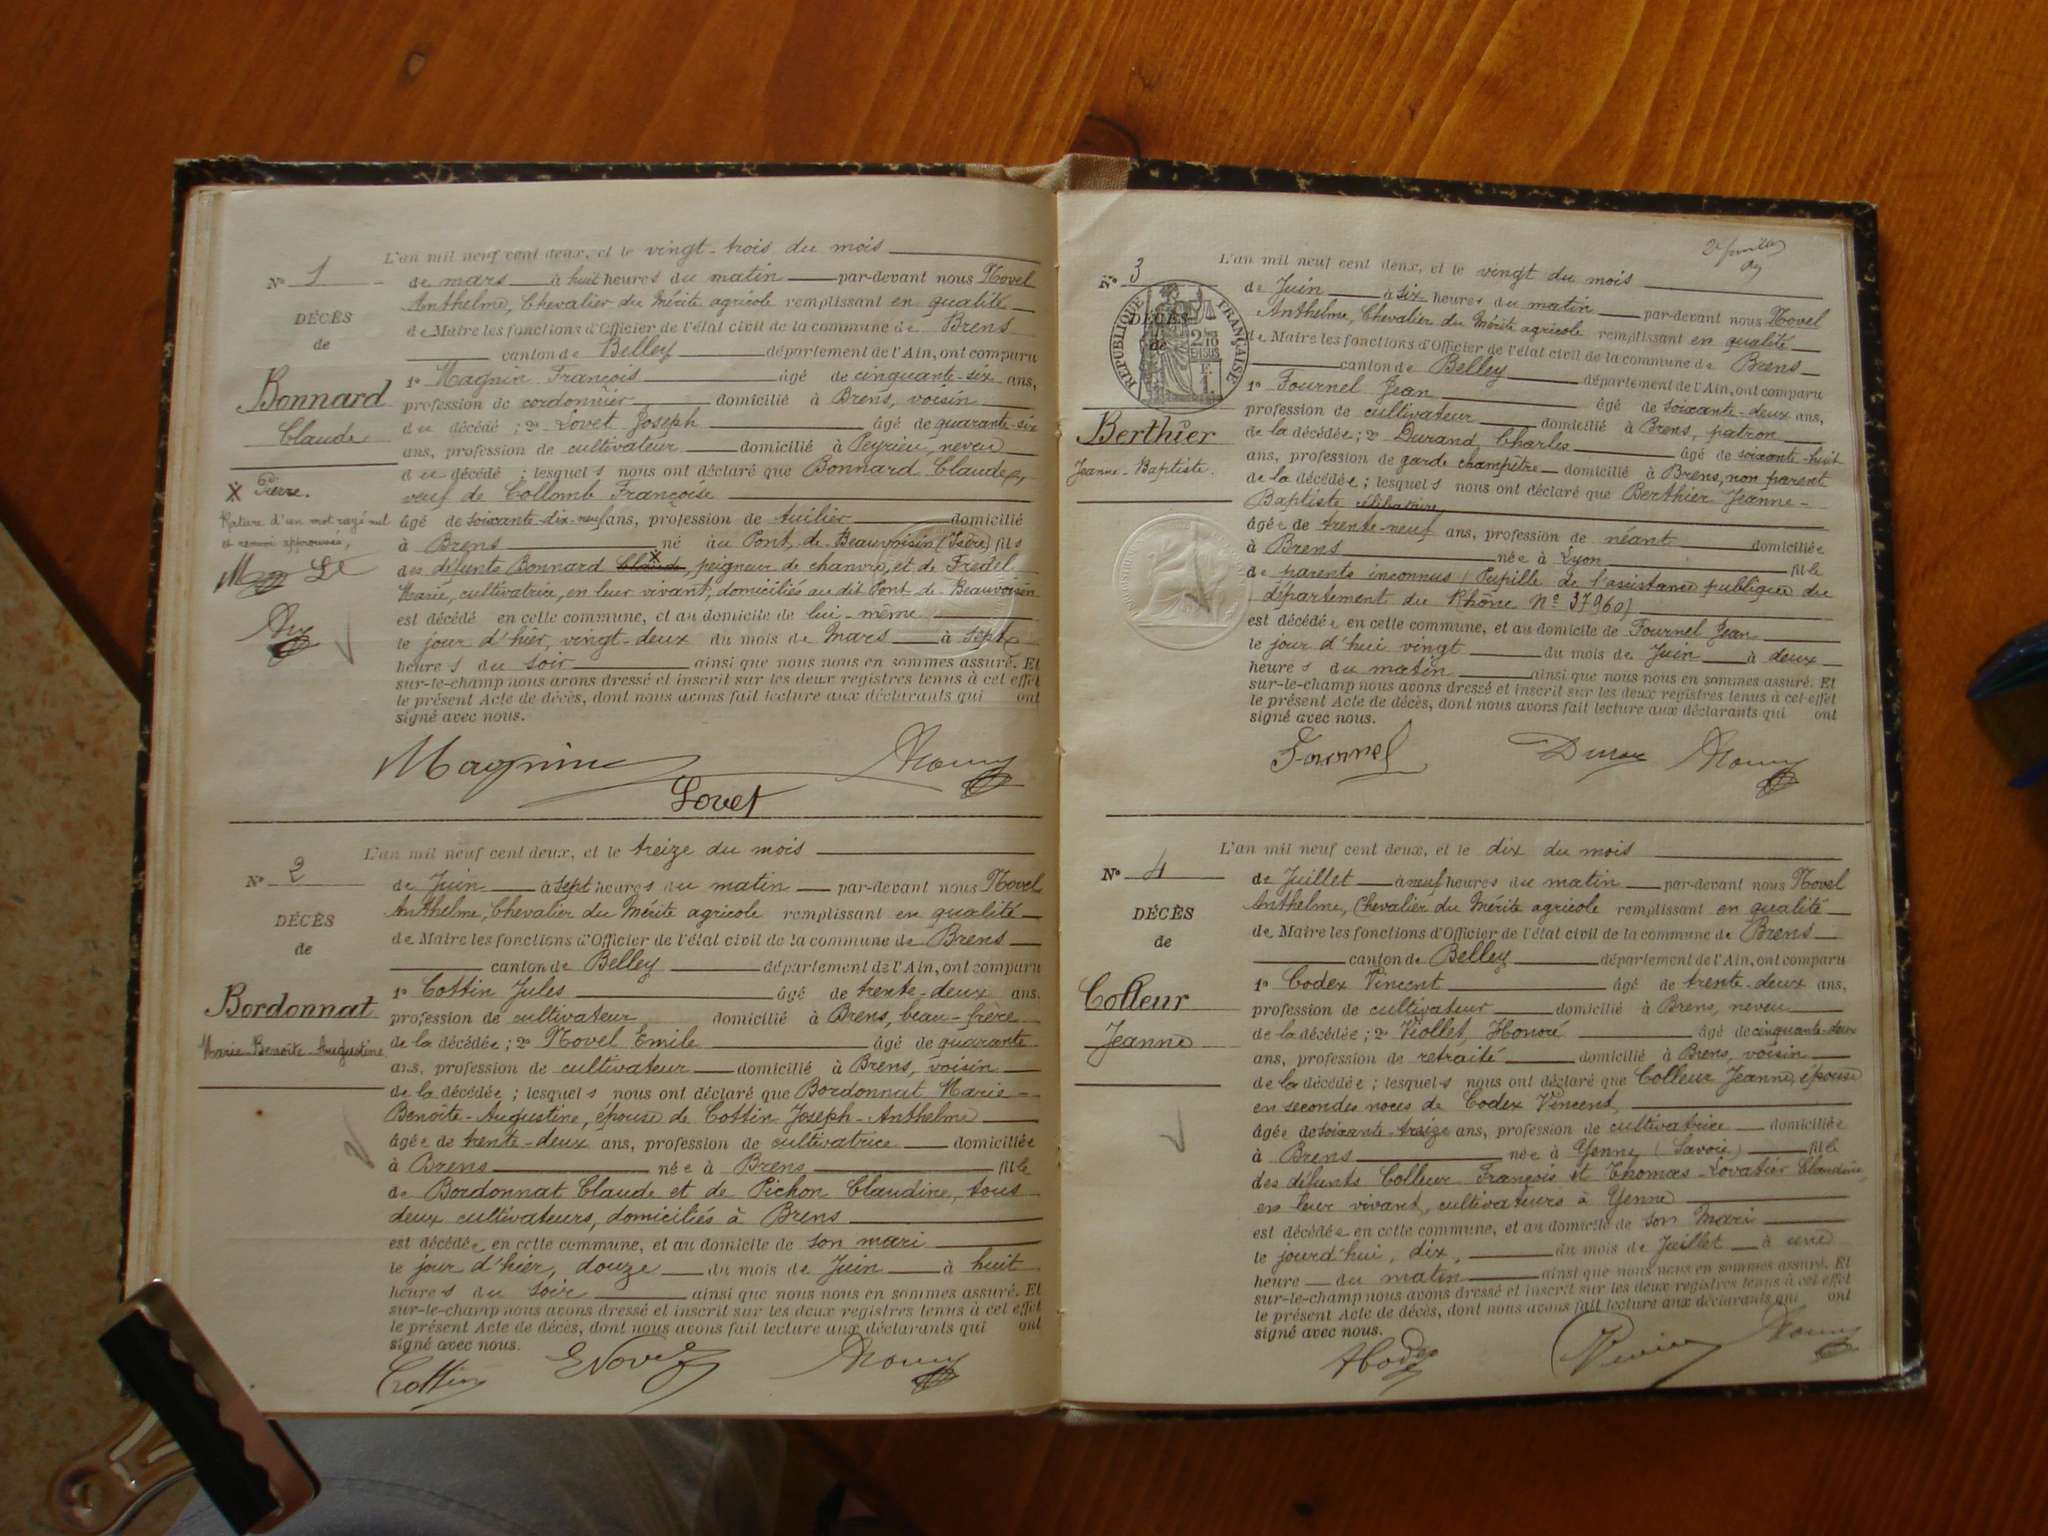 L'an mil neuf cent deux, et le vingt-trois du mois
N° 1
de mars à huit heures du matin par-devant nous Novel
Anthelme, Chevalier du Mérite agricole remplissant en qualité
DÉCÈS
de Maire les fonctions d'Officier de l'état civil de la commune de Brens
de
canton de Belley département de l'Ain, ont comparu
1° Magnin François âgé de cinquante-six ans,
Bonnard
profession de cordonnier domicilié à Brens, voisin
Claude
du décédé ; 2° Lovet Joseph âgé de quarante-six
ans, profession de cultivateur domicilié à Peyrieu, neveu
du décédé ; lesquels nous ont déclaré que Bonnard Claude,
X Pierre.
veuf de Collomb Françoise
Rature d'un mot rayé nul
et renvoi approuvés,
âgé de soixante-dix-neuf ans, profession de tuilier domicilié
à Brens né au Pont de Beauvoisin (Isère) fils
des défunts Bonnard Claude, peigneur de chanvre, et de Fredel
Marie, cultivatrice, en leur vivant, domiciliés au dit Pont de Beauvoisin
est décédé en cette commune, et au domicile de lui-même
le jour d'hier, vingt-deux du mois de Mars à sept
heures du soir ainsi que nous nous en sommes assuré. Et
sur-le-champ nous avons dressé et inscrit sur les deux registres tenus à cet effet
le présent Acte de décès, dont nous avons fait lecture aux déclarants qui ont
signé avec nous.
Magnin
Lovet
L'an mil neuf cent deux, et le treize du mois
N° 2
de Juin à sept heures du matin par-devant nous Novel
Anthelme, Chevalier du Mérite agricole remplissant en qualité
DÉCÈS
de Maire les fonctions d'Officier de l'état civil de la commune de Brens
de
canton de Belley département de l'Ain, ont comparu
1° Cottin Jules âgé de trente-deux ans,
Bordonnat
profession de cultivateur domicilié à Brens, beau-frère
Marie Benoîte Augustine
de la décédée ; 2° Novel Emile âgé de quarante
ans, profession de cultivateur domicilié à Brens, voisin
de la décédée ; lesquels nous ont déclaré que Bordonnat Marie-
Benoîte-Augustine, épouse de Cottin Joseph-Anthelme
âgée de trente-deux ans, profession de cultivatrice domiciliée
à Brens née à Brens fille
de Bordonnat Claude et de Pichon Claudine, tous
deux cultivateurs, domiciliés à Brens
est décédée en cette commune, et au domicile de son mari
le jour d'hier, douze du mois de Juin à huit
heures du soir ainsi que nous nous en sommes assuré. Et
sur-le-champ nous avons dressé et inscrit sur les deux registres tenus à cet effet
le présent Acte de décès, dont nous avons fait lecture aux déclarants qui ont
signé avec nous.
Cottin
E Novel
L'an mil neuf cent deux, et le vingt du mois
N° 3
de Juin à six heures du matin par-devant nous Novel
Anthelme, Chevalier du Mérite agricole remplissant en qualité
DÉCÈS
de
RÉPUBLIQUE FRANÇAISE
de Maire les fonctions d'Officier de l'état civil de la commune de Brens
canton de Belley département de l'Ain, ont comparu
1° Fournel Jean âgé de soixante-deux ans,
Berthier
profession de cultivateur domicilié à Brens, patron
Jeanne-Baptiste
de la décédée ; 2° Durand Charles âgé de soixante-huit
ans, profession de garde champêtre domicilié à Brens, non parent
de la décédée ; lesquels nous ont déclaré que Berthier Jeanne-
Baptiste célibataire
âgée de trente-neuf ans, profession de néant domiciliée
à Brens née à Lyon fille
de parents inconnus (Pupille de l'assistance publique du
département du Rhône N° 37960)
est décédée en cette commune, et au domicile de Fournel Jean
le jour d'hui vingt du mois de Juin à deux
heures du matin ainsi que nous nous en sommes assuré. Et
sur-le-champ nous avons dressé et inscrit sur les deux registres tenus à cet effet
le présent Acte de décès, dont nous avons fait lecture aux déclarants qui ont
signé avec nous.
Fournel
L'an mil neuf cent deux, et le dix du mois
N° 4
de Juillet à neuf heures du matin par-devant nous Novel
Anthelme, Chevalier du Mérite agricole remplissant en qualité
DÉCÈS
de Maire les fonctions d'Officier de l'état civil de la commune de Brens
de
canton de Belley département de l'Ain, ont comparu
1° Codex Vincent âgé de trente-deux ans,
Colleur
profession de cultivateur domicilié à Brens, neveu
Jeanne
de la décédée ; 2° Viollet, Honoré âgé de cinquante-deux
ans, profession de retraité domicilié à Brens, voisin
de la décédée ; lesquels nous ont déclaré que Colleur Jeanne, épouse
en secondes noces de Codex Vincent,
âgée de soixante-treize ans, profession de cultivatrice domiciliée
à Brens née à Yenne (Savoie) fille
des défunts Colleur François et Thomas-Lovatier Claudine,
en leur vivant, cultivateurs à Yenne
est décédée en cette commune, et au domicile de son Mari
le jourd'hui, dix, du mois de Juillet à une
heure du matin ainsi que nous nous en sommes assuré. Et
sur-le-champ nous avons dressé et inscrit sur les deux registres tenus à cet effet
le présent Acte de décès, dont nous avons fait lecture aux déclarants qui ont
signé avec nous.